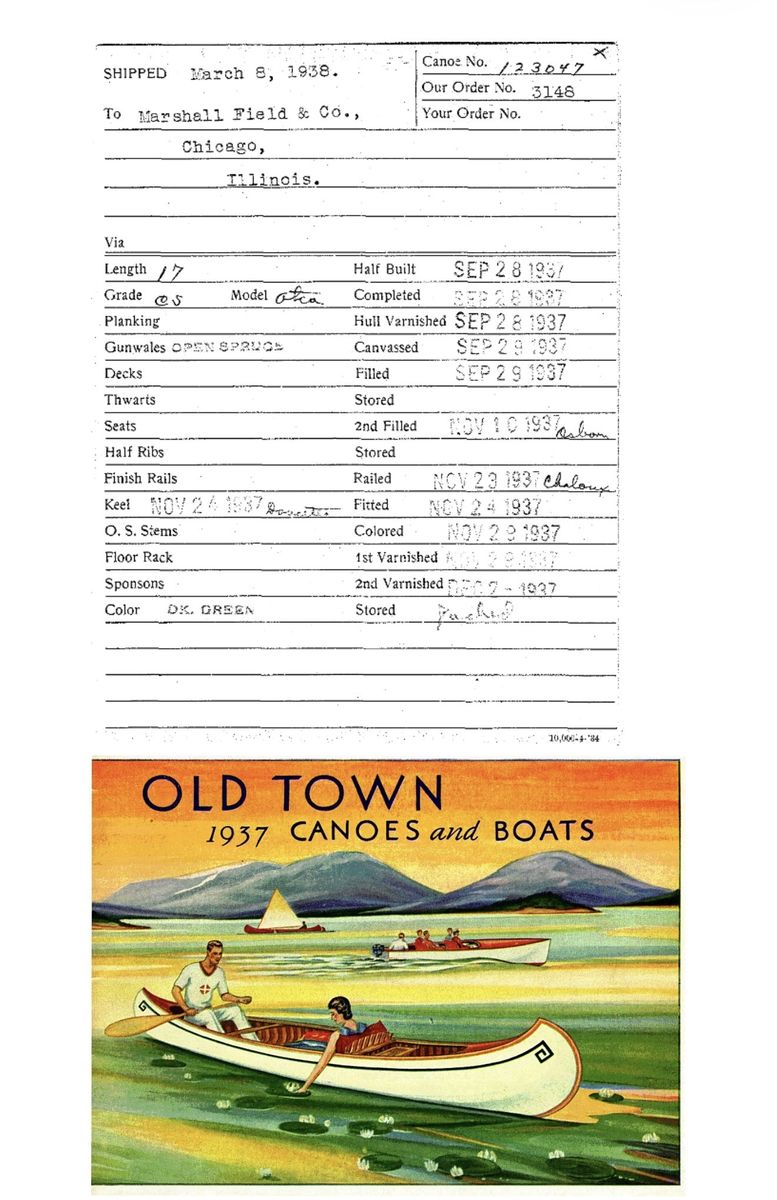 SHIPPED March 8, 1938.
Canoe No. 123047
Our Order No. 3148
To Marshall Field & Co.,
Your Order No.
Chicago,
Illinois.
Via
Length 17 Half Built SEP 28 1937
Grade CS Model Otca Completed SEP 28 1937
Planking Hull Varnished SEP 28 1937
Gunwales OPEN SPRUCE Canvassed SEP 29 1937
Decks Filled SEP 29 1937
Thwarts Stored
Seats 2nd Filled NOV 10 1937 Osborn
Half Ribs Stored
Finish Rails Railed NOV 23 1937 Chaloux
Keel NOV 24 1937 Fitted NOV 24 1937
O. S. Stems Colored NOV 29 1937
Floor Rack 1st Varnished 1937
Sponsons 2nd Varnished DEC 2 - 1937
Color DK. GREEN Stored
10,000-4-'34
OLD TOWN
1937 CANOES and BOATS